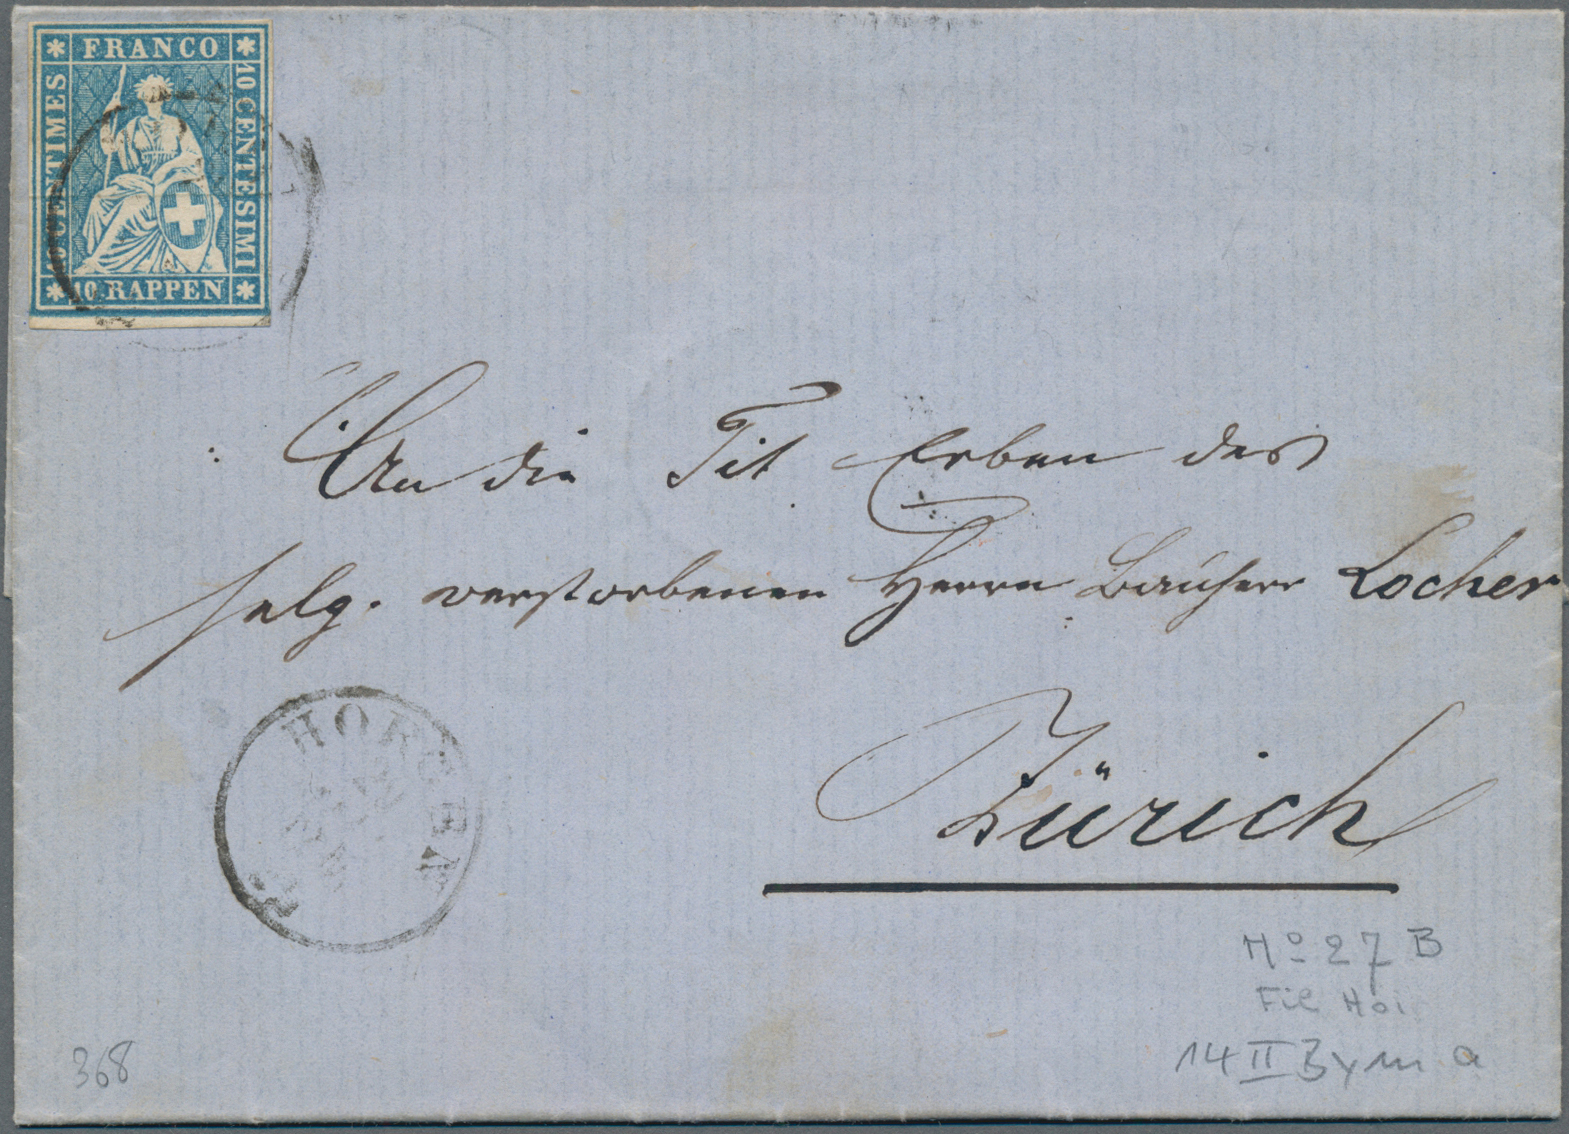 * FRANCO *
10 CENTIMES
10 CENTESIMI
* 10 RAPPEN *
An die Tit. Erben des
selg. verstorbenen Herrn Bauherr Locher
Zürich
HORGEN
No 27 B
Fil Hoi
14 II B y m a
368